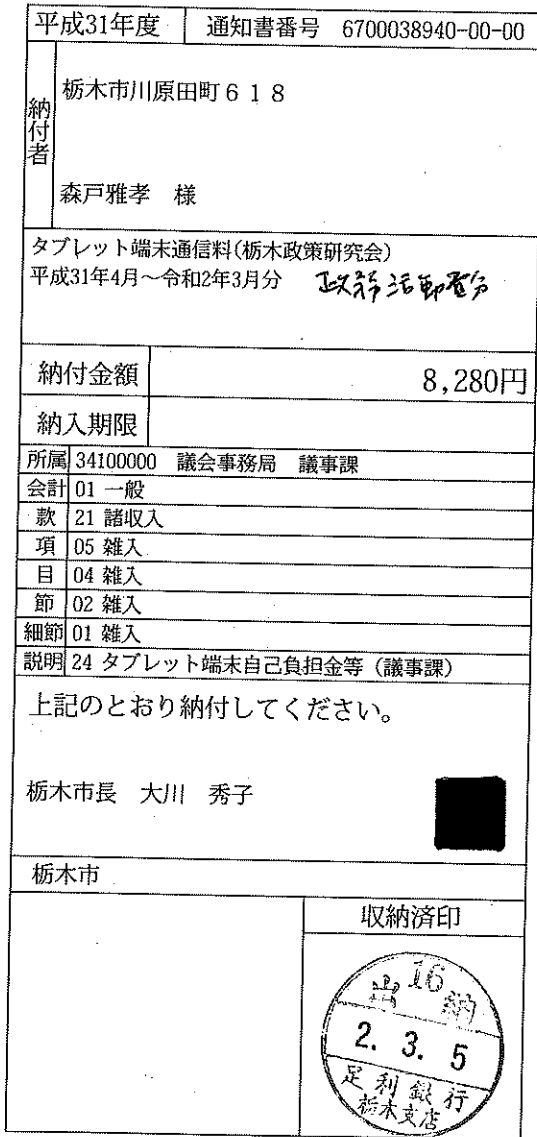 平成31年度 通知書番号 6700038940-00-00
納付者
栃木市川原田町618
森戸雅孝 様
タブレット端末通信料(栃木政策研究会)
平成31年4月～令和2年3月分 政務活動費分
納付金額 8,280円
納入期限
所属 34100000 議会事務局 議事課
会計 01 一般
款 21 諸収入
項 05 雑入
目 04 雑入
節 02 雑入
細節 01 雑入
説明 24 タブレット端末自己負担金等(議事課)
上記のとおり納付してください。
栃木市長 大川 秀子
栃木市
収納済印
16
出納
2. 3. 5
足利銀行
栃木支店